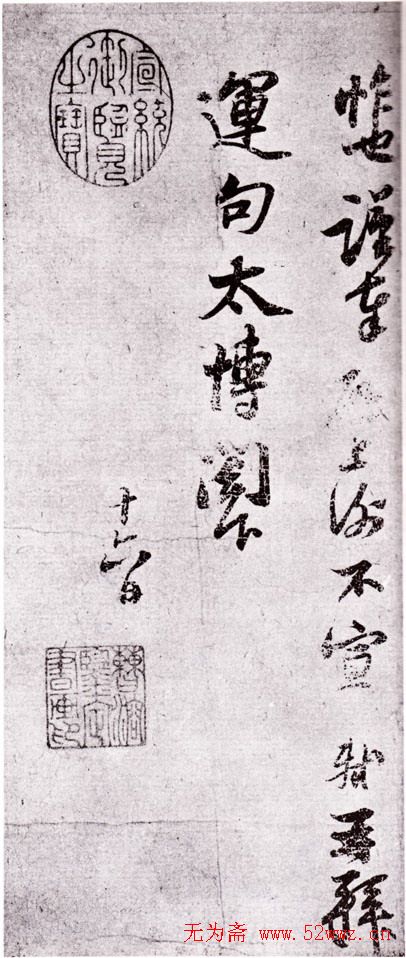 怍也謹奉啟上謝不宣 軾再拜
運句太博閣下
十六日
宣統御覽之寶
曹溶鑒定書畫印
无为斋 www.52wwz.cn